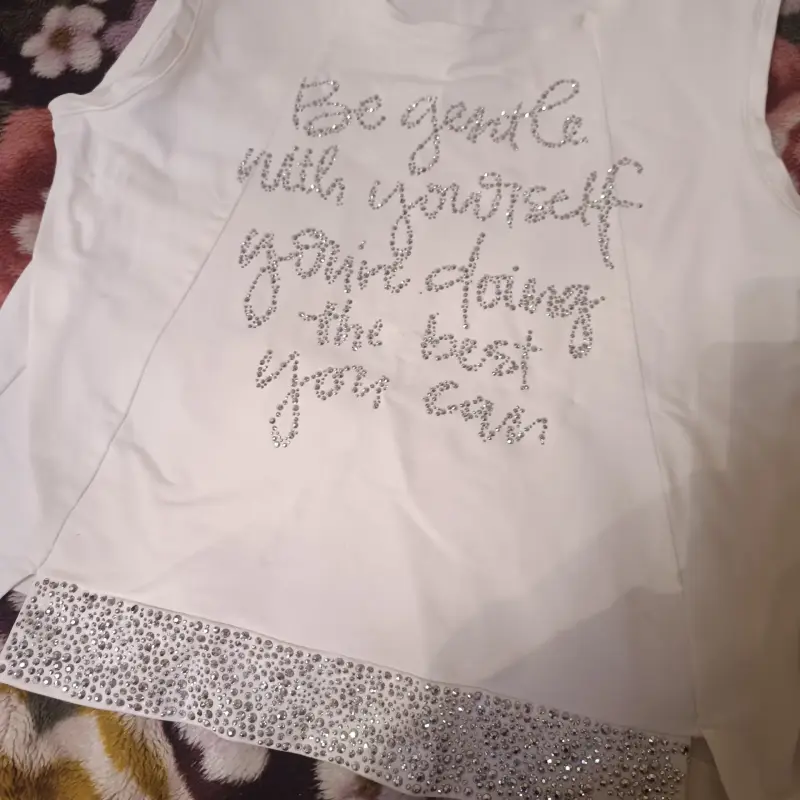 Be gentle
with yourself
you're doing
the best
you can